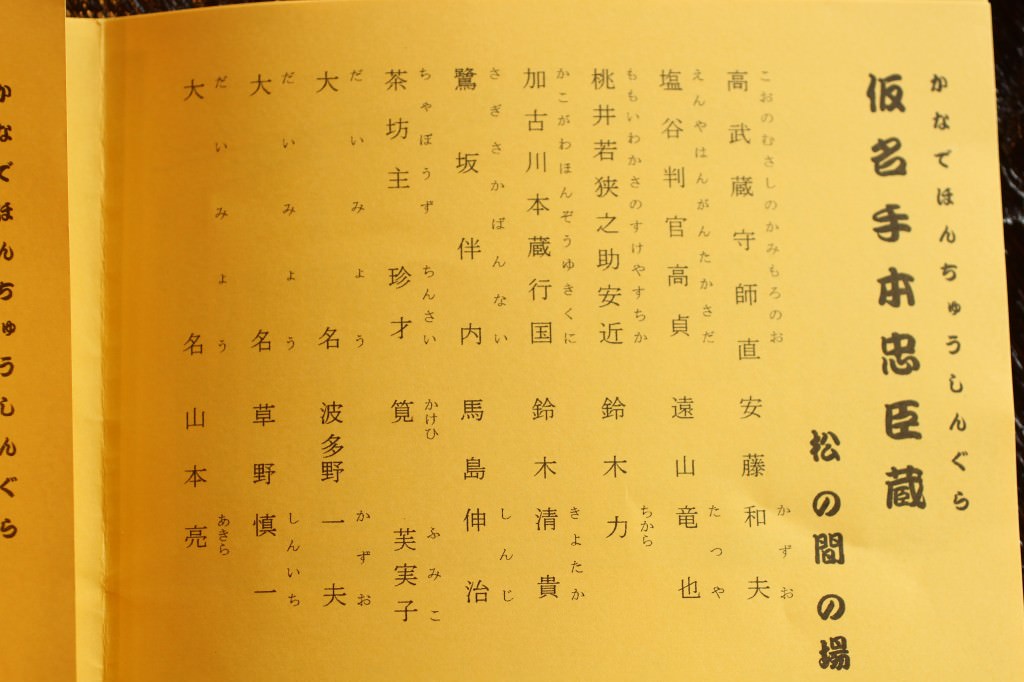 かなでほんちゅうしんぐら
仮名手本忠臣蔵
松の間の場
こおのむさしのかみもろのお かずお
高武蔵守師直 安藤 和夫
えんやはんがんたかさだ たつや
塩谷判官高貞 遠山 竜也
ももいわかさのすけやすちか ちから
桃井若狭之助安近 鈴木 力
かこがわほんぞうゆきくに きよたか
加古川本蔵行国 鈴木 清貴
さぎさかばんない しんじ
鷺坂伴内 馬島 伸治
ちゃぼうず ちんさい かけひ ふみこ
茶坊主 珍才 筧 芙実子
だいみょう かずお
大名 波多野 一夫
だいみょう しんいち
大名 草野 慎一
だいみょう あきら
大名 山本 亮
かなでほんちゅうしんぐら